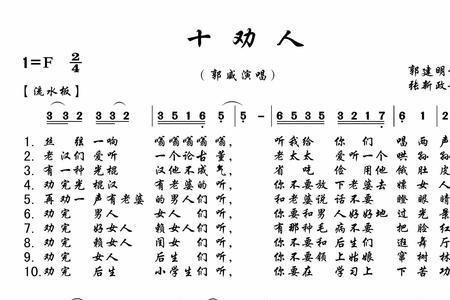 十劝人
1=F 2/4
(郭威演唱)
郭建明
张新政
【流水板】
3 2 3 2 3 5 1 6 5 5 - 6 5 3 5 3 2 1 7
1. 丝弦一响 嗡嗡嗡嗡嗡, 听我给你们唱两声
2. 老汉们爱听 一个论古董, 老太太爱听一个哄孙孙
3. 有一种光棍 汉他不成气, 省吃俭用他俄肚皮
4. 劝完光棍汉 有老婆的听, 你不要放下老婆去嫖女人
5. 再劝一声有老婆 的男人们听, 和老婆说话不要瞪眼睛
6. 劝完男人 女人们听, 你要和男人好好地过光景
7. 劝完好女人 赖女人们听, 有那种毛病不要把脸红
8. 劝完赖女人 闺女们听, 你不要和后生们逛舞厅
9. 劝完女人 后生们听, 你不要领上姑娘窜树林
10. 劝完后生 小学生们听, 你要在学习上下苦功
3 3 2